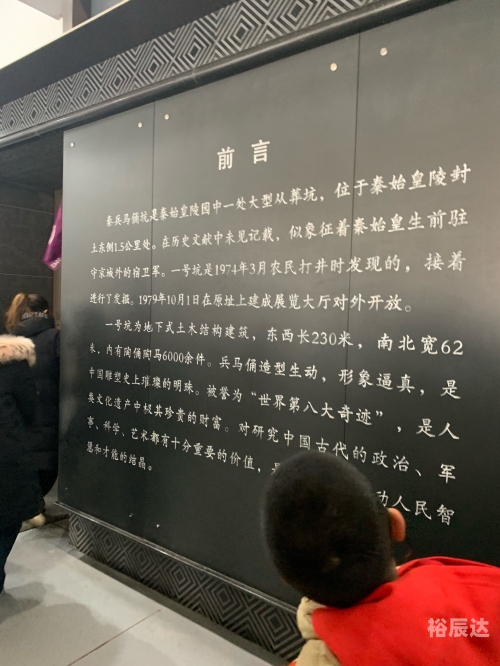 前言
秦兵马俑坑是秦始皇陵园中一处大型从葬坑，位于秦始皇陵封
土东侧1.5公里处。在历史文献中未见记载，似象征着秦始皇生前驻
守京城外的宿卫军。一号坑是1974年3月农民打井时发现的，接着
进行了发掘。1979年10月1日在原址上建成展览大厅对外开放。
一号坑为地下式土木结构建筑，东西长230米，南北宽62
米，内有陶俑陶马6000余件。兵马俑造型生动，形象逼真，是
中国雕塑史上璀璨的明珠。被誉为“世界第八大奇迹”，是人
类文化遗产中极其珍贵的财富。对研究中国古代的政治、军
事、科学、艺术都有十分重要的价值，动人民智
慧和才能的结晶。
裕辰达